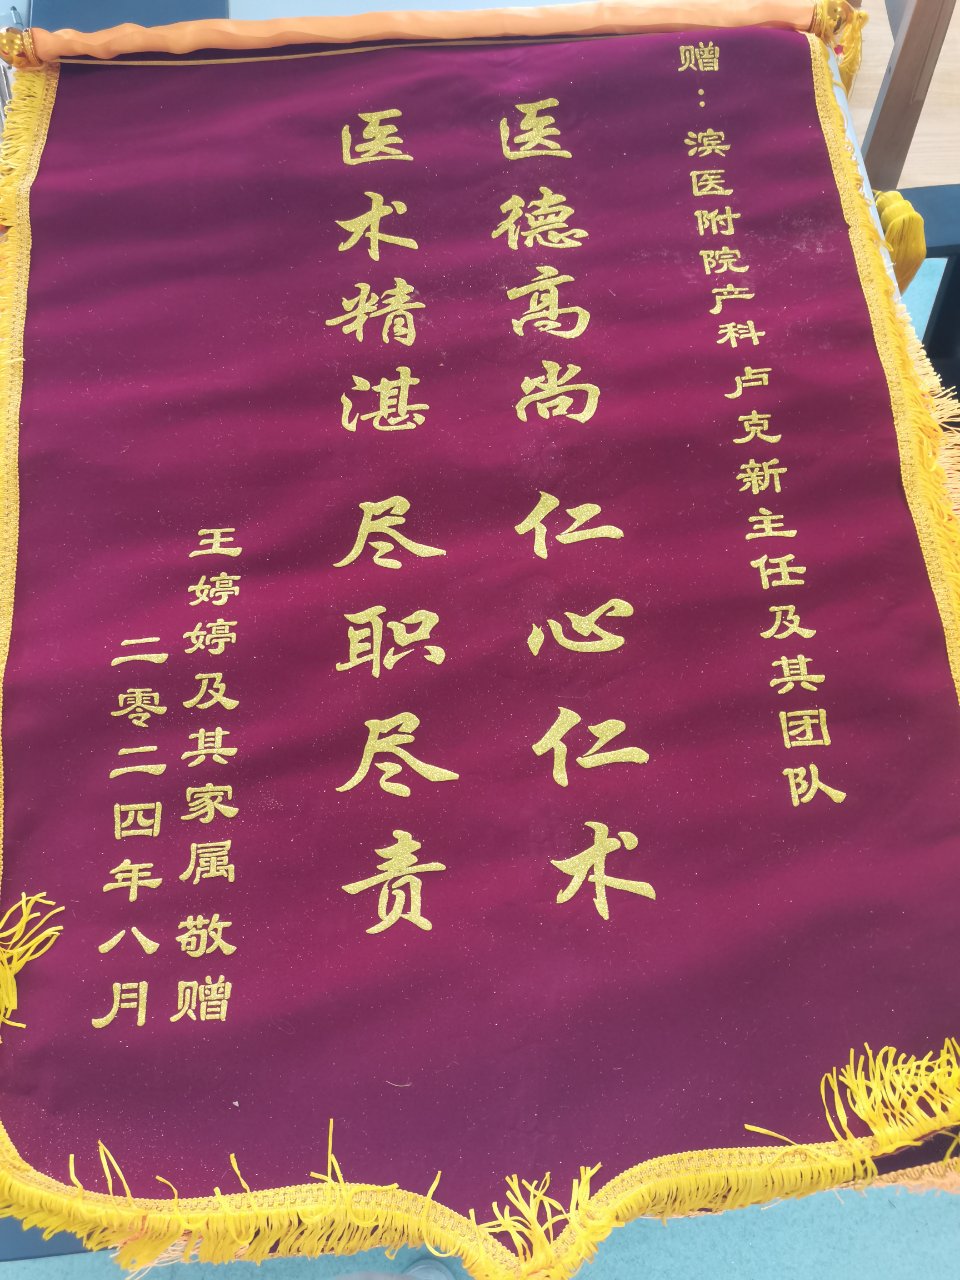 赠：滨医附院产科卢克新主任及其团队
医德高尚 仁心仁术
医术精湛 尽职尽责
王婷婷及其家属敬赠
二零二四年八月